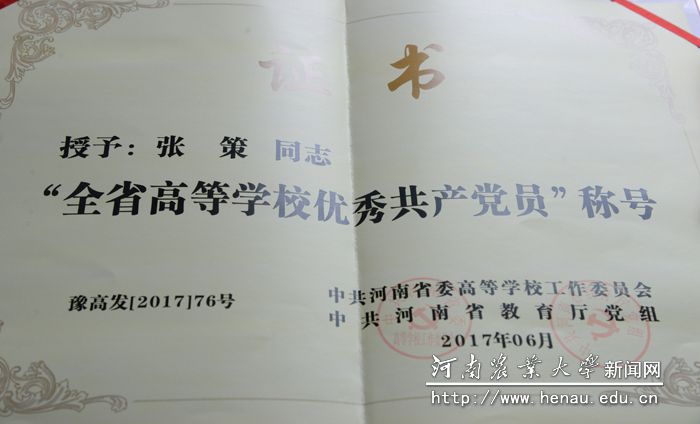 证 书
授予：张 策 同志
“全省高等学校优秀共产党员”称号
豫高发[2017]76号
中共河南省委高等学校工作委员会
中共河南省教育厅党组
2017年06月
河南农业大学新闻网
http://www.henau.edu.cn